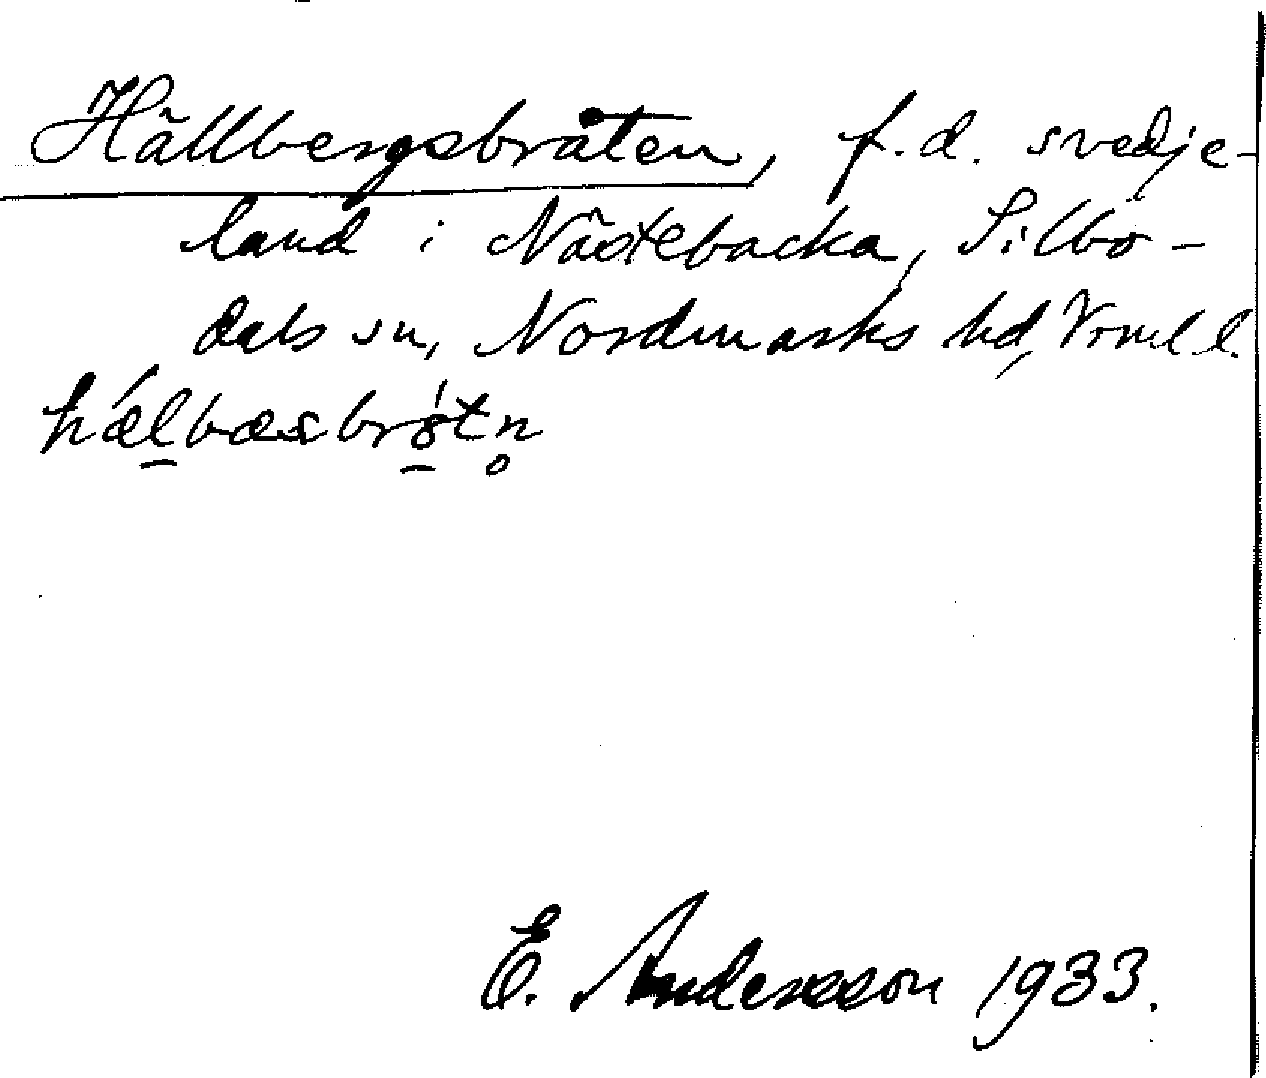 Hällbergsbråten, f.d. svedje-
land i Nästebacka, Silbo-
dals sn, Nordmarks hd, Vrml l.
E. Andersson 1933.